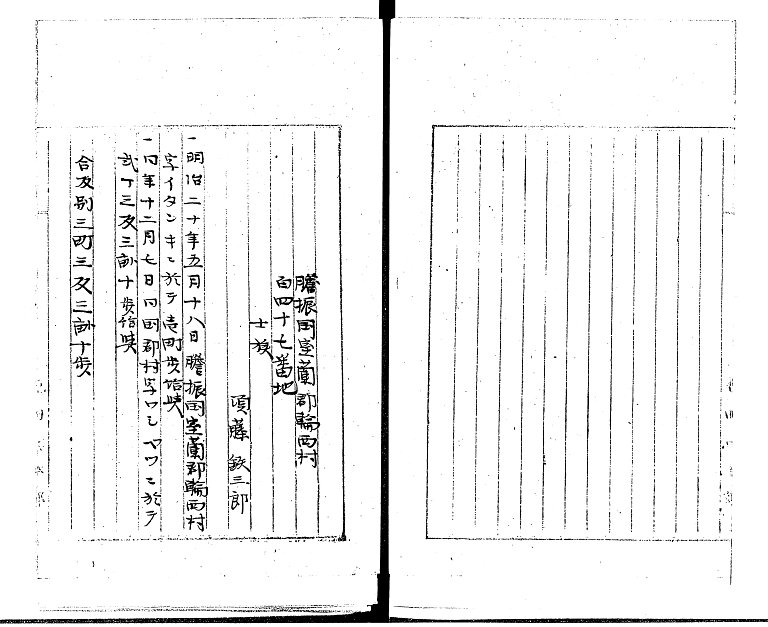 膽振国室蘭郡輪西村
百四十七番地
士族
須藤鉄三郎
一明治二十年五月十八日膽振国室蘭郡輪西村
字イタンキニ於テ壱町歩給與
一同年十二月七日同国郡村字ワシベツニ於テ
弐丁三反三畝十歩給與
合反別三町三反三畝十歩